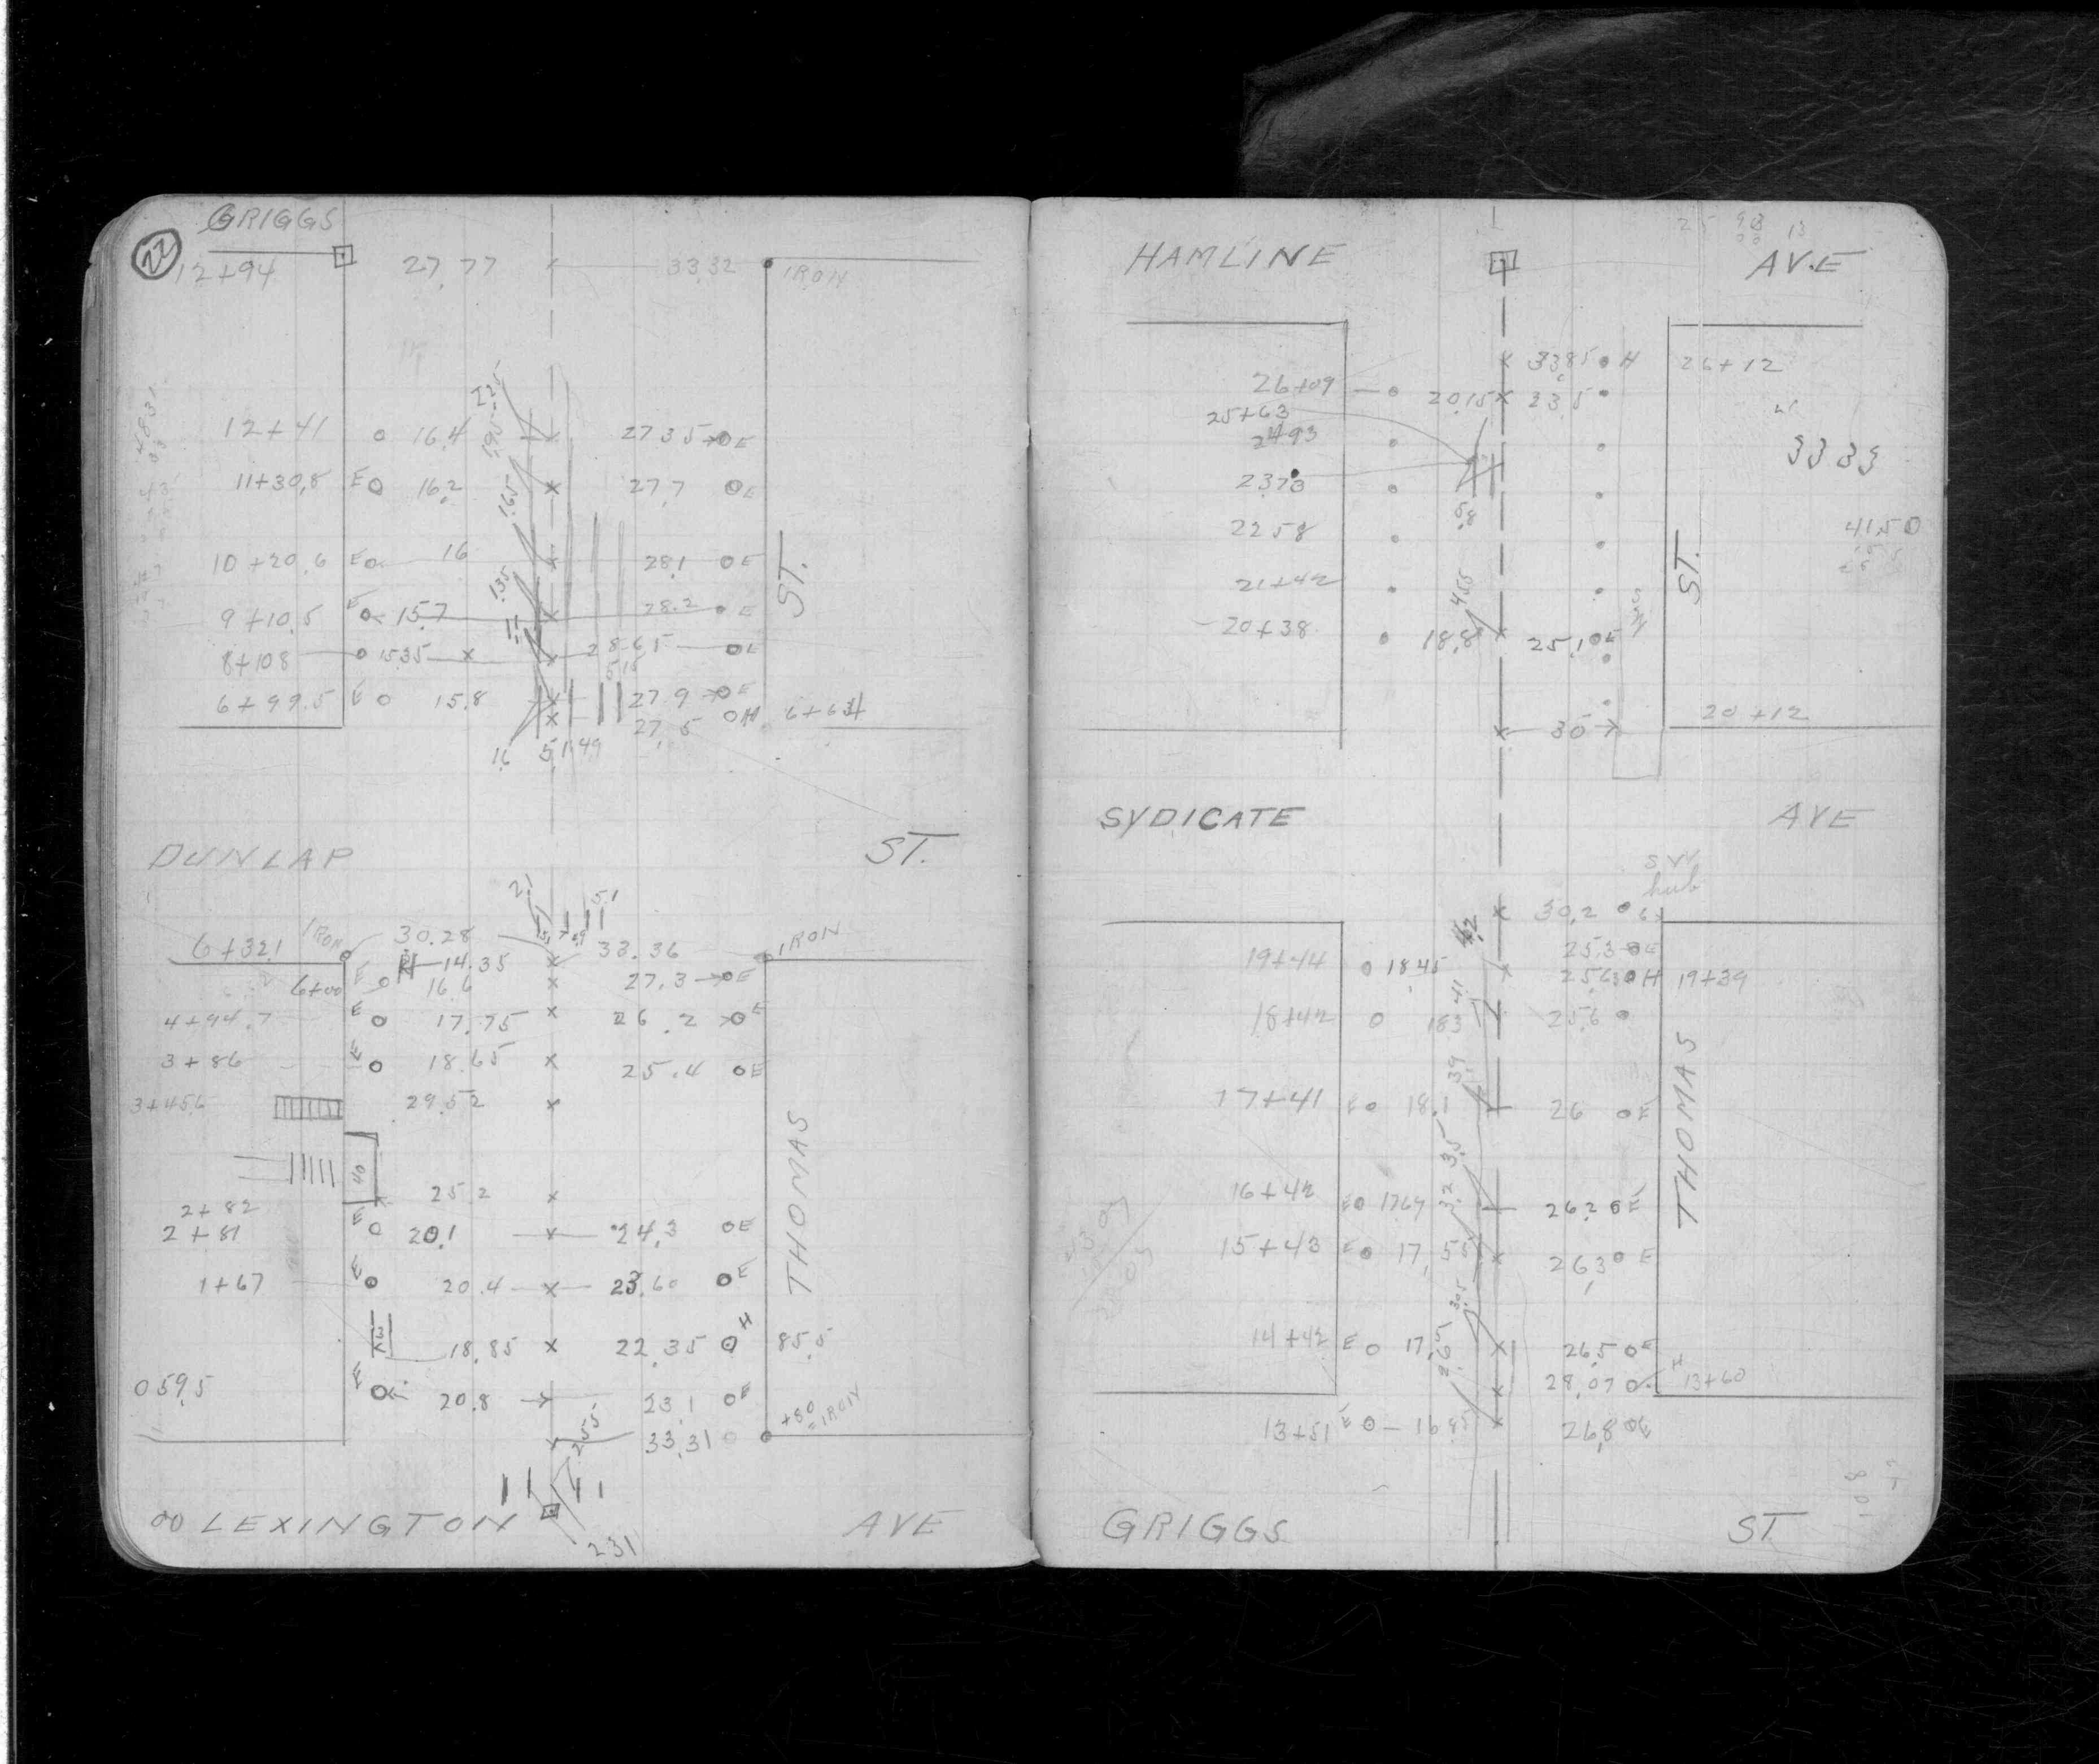 22
GRIGGS
12+94 27.77 33.32 IRON
12+41 16.4 27.35 E
11+30.8 E 16.2 27.7 E
10+20.6 E 16 28.1 E
ST.
9+10.5 E 15.7 28.2 E
8+108 15.35 28.65 E
6+99.5 E 15.8 27.9 E
27.5 H 6+64
.16 5.1 .49
.11
.135
.165
.195
.225
DUNLAP ST.
2.1 5.1
6+32.1 IRON 30.28 33.36 IRON
14.35
6+00 E 16.6 27.3 E
4+94.7 E 17.75 26.2 E
3+86 E 18.65 25.4 E
3+45.6 29.52
THOMAS
2+82 25.2
2+81 E 20.1 24.3 E
1+67 E 20.4 23.60 E
18.85 22.35 H 85.5
0 59.5 E 20.8 23.1 E
33.31 +80 = IRON
.255
00 LEXINGTON AVE
.231
HAMLINE AVE
33.85 H 26+12
26+09 20.15 33.5
25+63
2493
2373
3333
2258 .58
41.50
21+42 ST.
20+38 18.8 .455 25.1 E
20+12
30
SYDICATE AVE
SW
hub
.42 30.2
25.3 E
19+44 18.45 25.63 H 19+39
18+42 18.3 .41 25.6
.39
17+41 E 18.1 26 E
THOMAS
.35
16+42 E 17.67 .32 26.2 E
15+43 E 17.55 26.3 E
.305
14+42 E 17. 26.5 E
28.07 H 13+60
13+51 E 16.85 26.8 E
GRIGGS ST